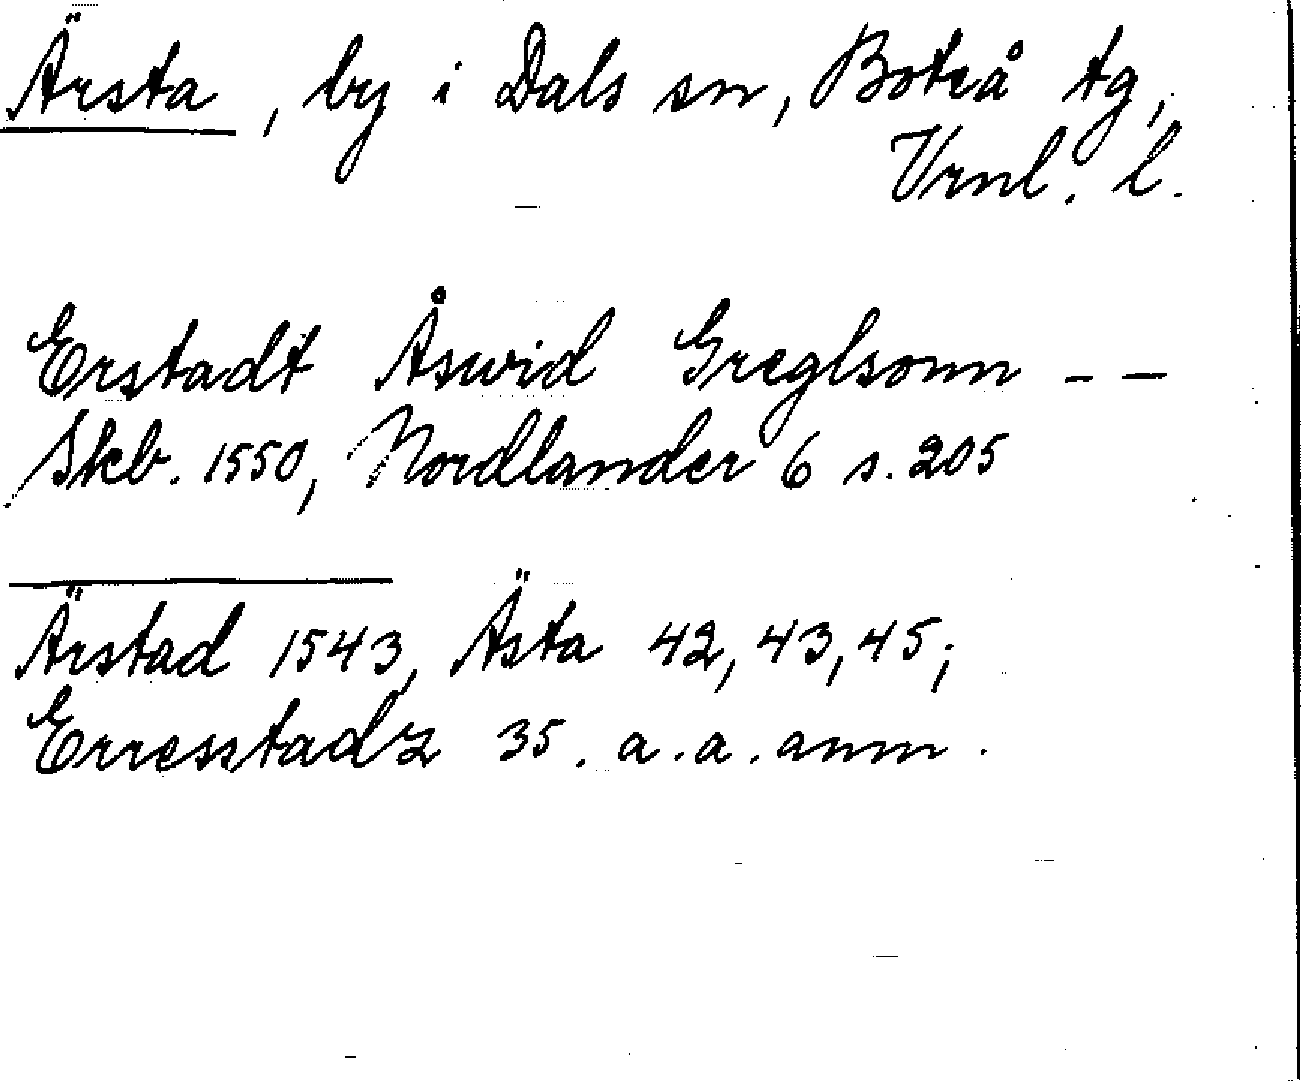 Ärsta, by i Dals sn, Boteå tg,
Vrnl. l.
Erstadt Åswid Greglsonn – –
Skb. 1550, Nordlander 6 s. 205
Ärstad 1543, Ästa 42, 43, 45;
Erresstadz 35. a.a. anm.